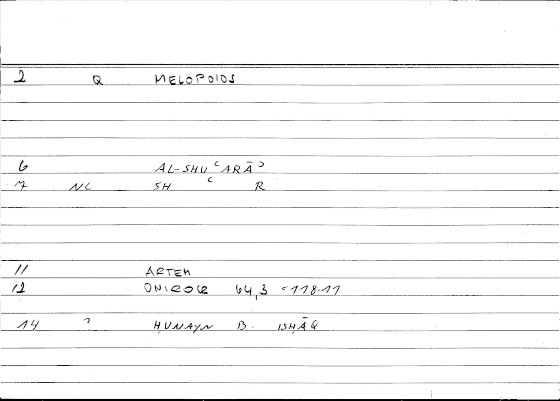 2 Q MELOPOIOS
6 AL-SHUʿARĀʾ
7 NC SH ʿ R
11 ARTEM
12 ONIROCR 64,3 = 118.11
14 ? ḤUNAYN B. ISḤĀQ